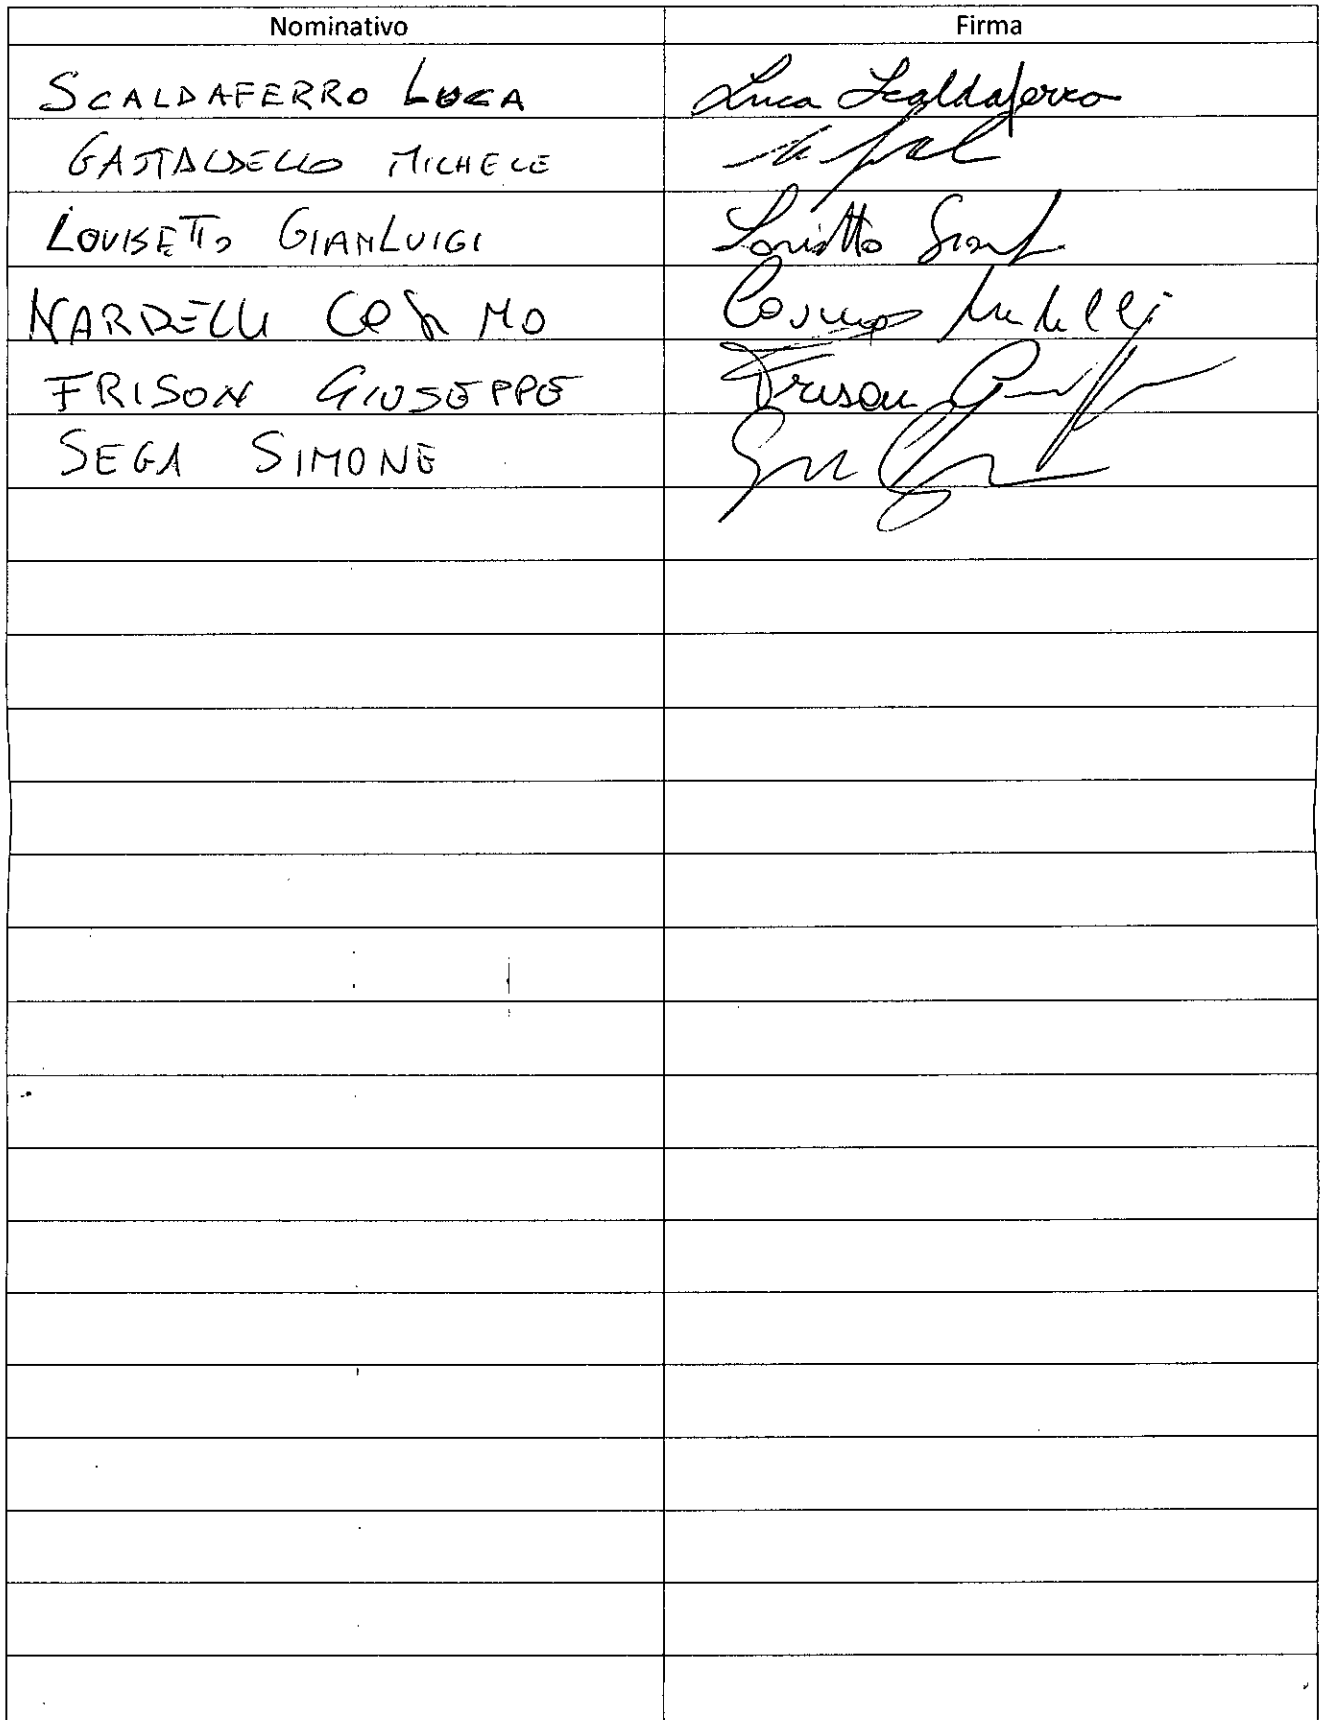 Nominativo Firma
SCALDAFERRO LUCA Luca Scaldaferro
GASTALDELLO MICHELE
LOVISETTO GIANLUIGI
NARDELLI COSIMO Cosimo
FRISON GIUSEPPE Frison
SEGA SIMONE